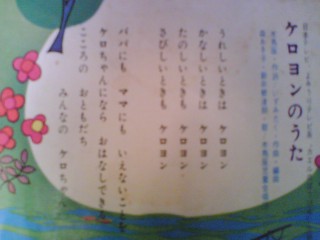 ケロヨンのうた
うれしいときは ケロヨン
かなしいときは ケロヨン
たのしいときも ケロヨン
さびしいときも ケロヨン
パパにも ママにも いえないことを
ケロちゃんになら おはなしできる
こころの おともだち
みんなの ケロちゃん